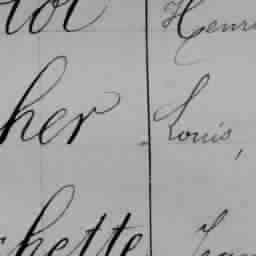 tot Henri
her Louis,
chette Jean